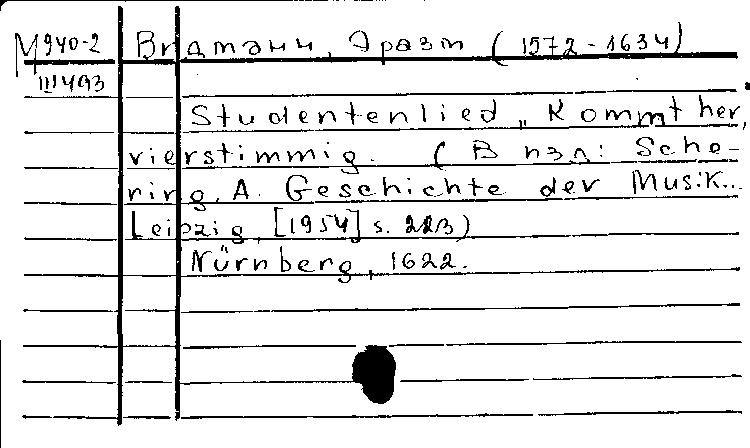 М940-2 Видманн, Эразм (1572-1634)
III493
Studentenlied „Kommt her,
vierstimmig. (В изд: Sche-
ring, A. Geschichte der Musik...
Leipzig, [1954] s. 223)
Nürnberg, 1622.